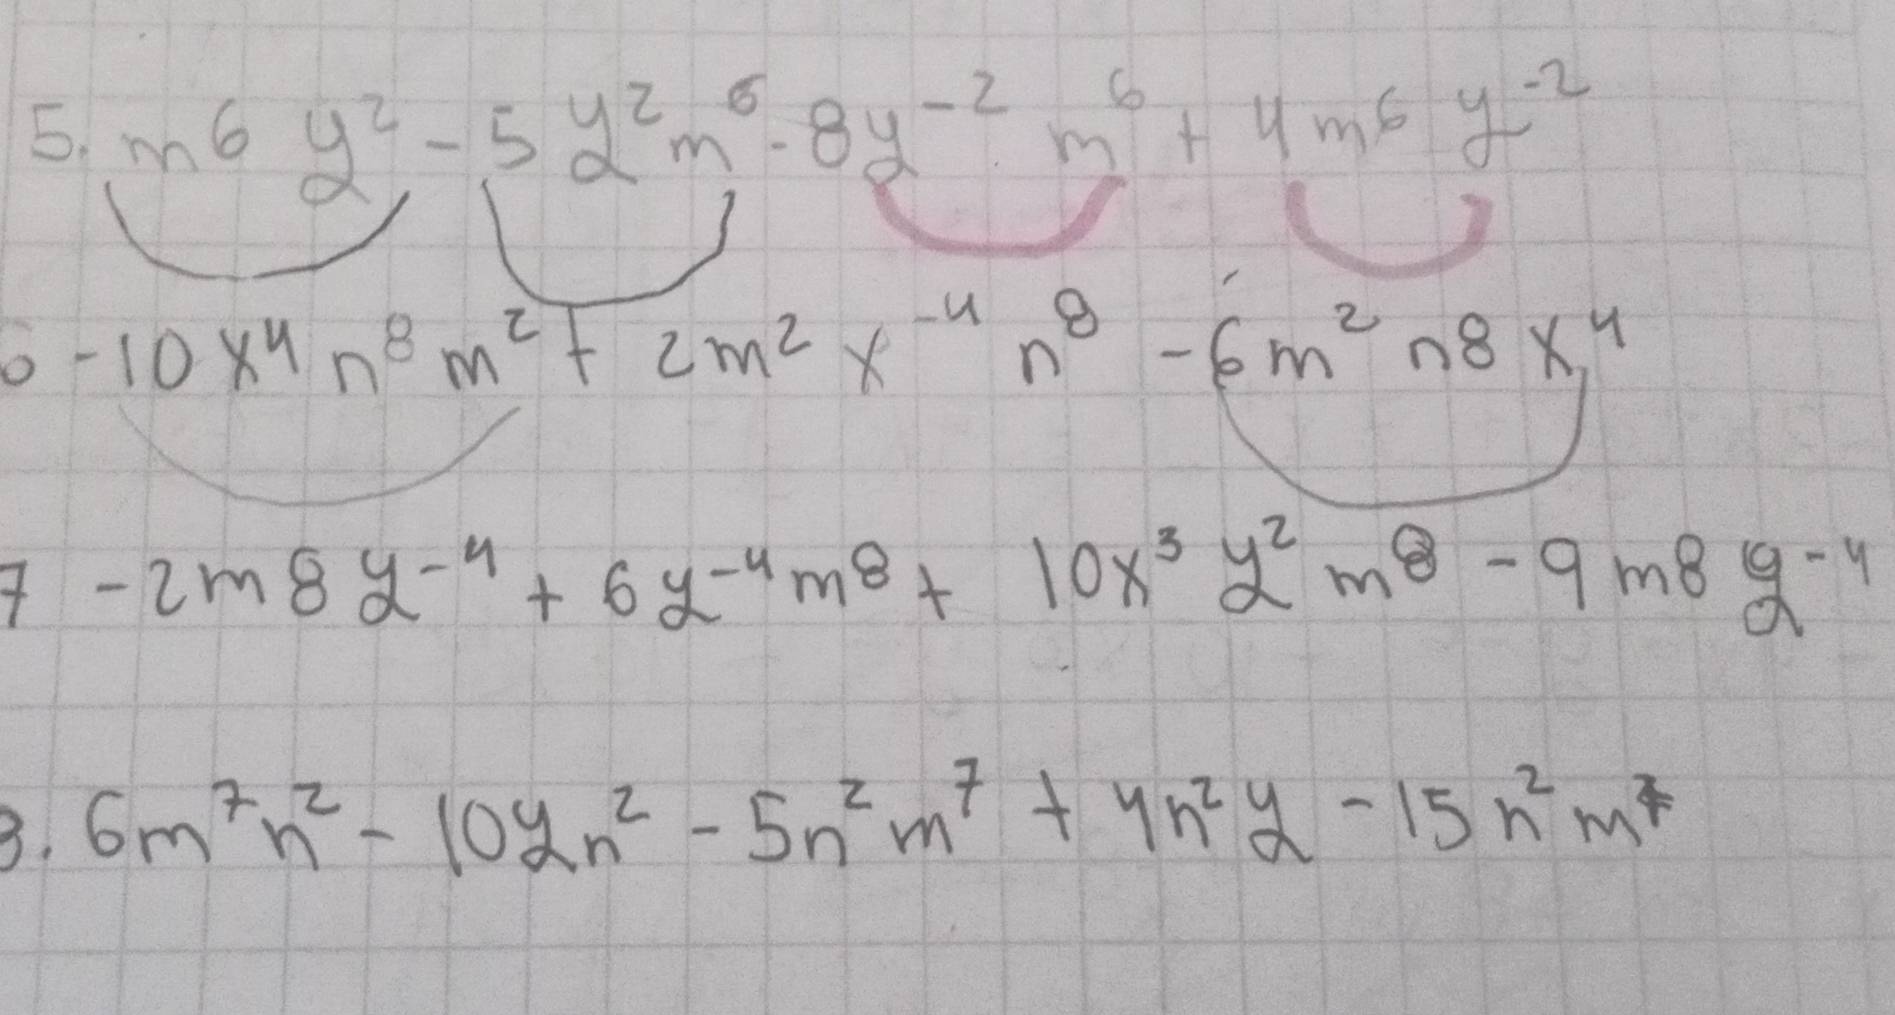 5. m⁶ y² - 5 y² m⁶ - 8y⁻² m⁶ + 4m⁶ y⁻²
6 -10 x⁴ n⁸ m² + 2m² x⁻⁴ n⁸ - 6m² n⁸ x⁴
7 -2m8 y⁻⁴ + 6y⁻⁴ m⁸ + 10x³ y² m⁸ - 9m8 y⁻⁴
8. 6m⁷n² - 10yn² - 5n²m⁷ + 4n²y - 15n²m⁷